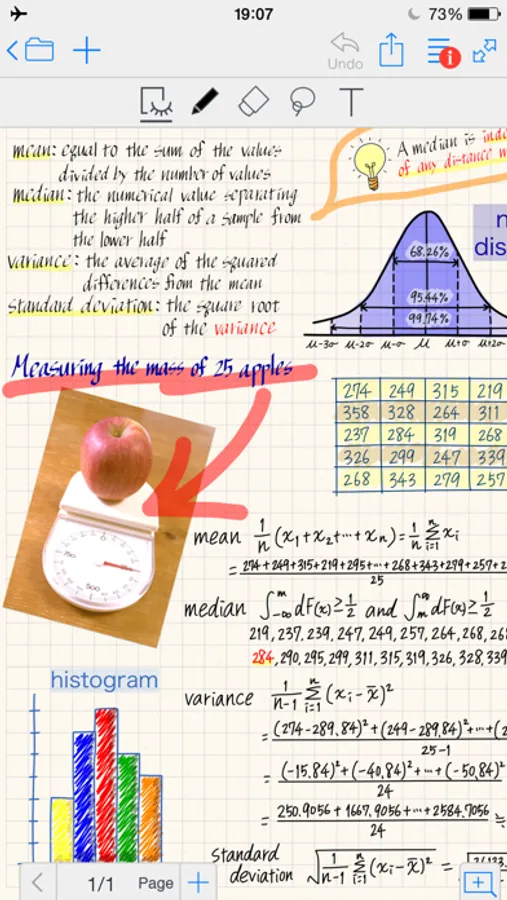 19:07
73%
Undo
i
T
mean: equal to the sum of the values
divided by the number of values
median: the numerical value separating
the higher half of a sample from
the lower half
variance: the average of the squared
differences from the mean
standard deviation: the square root
of the variance
A median is
of any distance
68.26%
95.44%
99.74%
μ-3σ μ-2σ μ-σ μ μ+σ μ+2σ
Measuring the mass of 25 apples
274 249 315 219
358 328 264 311
237 284 319 268
326 299 247 339
268 343 279 257
mean 1/n (x₁+x₂+···+xₙ) = 1/n ∑ⁿᵢ₌₁ xᵢ
= 274+249+315+219+295+···+268+343+279+257+2
25
median ∫ᵐ₋∞ dF(x) ≥ 1/2 and ∫^∞ₘ dF(x) ≥ 1/2
219, 237, 239, 247, 249, 257, 264, 268, 268
284, 290, 295, 299, 311, 315, 319, 326, 328, 339
histogram
variance 1/(n-1) ∑ⁿᵢ₌₁ (xᵢ - x̄)²
= (274-289.84)² + (249-289.84)² + ··· + (2
25-1
= (-15.84)² + (-40.84)² + ··· + (-50.84)²
24
= 250.9056 + 1667.9056 + ··· + 2584.7056 ≒
24
standard
deviation √(1/(n-1) ∑ⁿᵢ₌₁ (xᵢ - x̄)²) =
1/1 Page